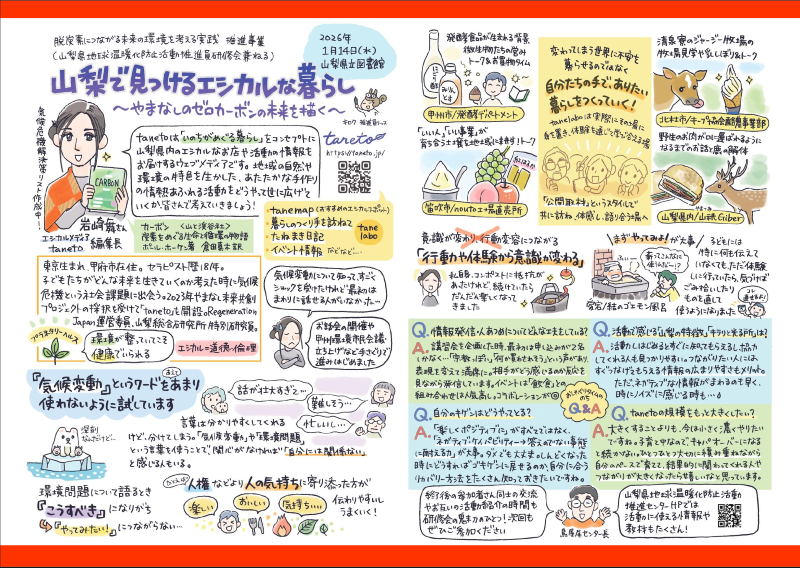 脱炭素につながる未来の環境を考える実践 推進事業
(山梨県地球温暖化防止活動推進員研修会兼ねる)
2026年
1月14日(水)
山梨県立図書館
山梨で見つけるエシカルな暮らし
〜やまなしのゼロカーボンの未来を描く〜
気候危機解決策リスト作成中!
CARBON
岩崎
さん
エシカルメディア
taneto
編集長
tanetoは「いのちがめぐる暮らし」をコンセプトに
山梨県内のエシカルなお店や活動の情報を
お届けするウェブメディアです。地域の自然や
環境の特色を生かした、あたたかな手作り
の情熱あふれる活動をどうやって世に広げて
いくか、皆さんで考えていきましょう!
taneto
https://taneto.jp/
カーボン 〈山と渓谷社〉
炭素をめぐる生命と文明の物語
ポール・ホーケン著 倉田真木訳
・tanemap(おすすめのエシカルスポット)
・暮らしのつくり手を訪ねて
・たねまき日記
・イベント情報 などなど…
tane
labo
東京生まれ、甲府市在住。セラピスト歴18年。
子どもたちがどんな未来を生きていくのか考えた時に気候
危機という社会課題に出会う。2023年やまなし未来共創
プロジェクトの採択を受けて「taneto」を開設。Regeneration
Japan運営委員、山梨総合研究所特別研究員。
プラネタリーヘルス
環境が整っていてこそ
健康でいられる
エシカル=道徳・倫理
気候変動について知って、すごく
ショックを受けたけれど最初は
まわりに話せる人がいなかった…
お話会の開催や
甲州環境市民会議・
立ち上げなど手さぐりで
進みはじめました
『気候変動』というワードをあまり
あえて
使わないように試しています
深刻
なんだけど…
話が壮大すぎて…
難しそう…
忙しいし…
言葉は分かりやすくしてくれる
けど、分けてしまう。「気候変動」や「環境問題」
という言葉を使うことで、関心がなければ「自分には関係ない」
と感じる人もいる。
環境問題について語るとき
『こうすべき』になりがち
↳『やってみたい!』につながらない…
たとえば
人権などより人の気持ちに寄り添った方が
伝わりやすいし
うまくいく!
楽しい
おいしい
気持ちいい
発酵食品が生まれる背景
微生物たちの営み
トーク&お買物タイム
みりん
甲州市/発酵デパートメント
「いい人」「いい事業」が
育ち合う土壌を地域に耕す!トーク
笛吹市/nouto工場直売所
変わってしまう世界に不安を
募らせるのではなく
自分たちの手で、ありたい
暮らしをつくっていく!
tanelaboは実際にその場に
足を運び、体験を通じて学び合える場
「公開取材」というスタイルで
共に訪ね、体感し、語り合う場へ
清泉寮のジャージー牧場の
牧場見学や乳しぼり&トーク
北杜市/キープ協会酪農事業部
野生のお肉が口に運ばれるように
なるまでのお話と鹿の解体
山梨県内/山味Giber
意識が変わり、行動変容につながる
「行動や体験から意識が変わる」
私自身、コンポストに抵抗が
あったけれど、続けていたら
だんだん愛しくなって
きました
まずやってみよ!が大事
常宿/結のゴエモン風呂
子どもには
特に何も伝えて
いなくても、ただ体験
しに行っていたら、気づけば
ごみ拾いしたり
ものを直して
使うようになります。
直せるよ!
Q. 情報発信、人あつめについてどんな工夫をしている?
A. 講習会を企画した時、最初は申し込みが2名
しかなく…「宗教っぽい」「何か買わされそう」という声があり
表現を変えて満席に。相手がどう感じるのか反応を
見ながら発信しています。イベントは「食と〇〇」との
組み合わせは人気高し。コラボレーションが◎
Q. 活動で感じる山梨の特徴、「キラリと光る所」は?
A. 活動しはじめるとすぐに知ってもらえるし、協力
してくれる人も見つかりやすい。つながりたい人には
すぐつなげてもらえる情報の広まりやすさもメリット。
ただ、ネガティブな情報がまわるのも早く、
時にノイズに感じる時も…
おしえて!タイムの
Q&A
Q. 自分のキゲンはどうやってとる?
A. 「楽しくポジティブに」がすべてではなく、
「ネガティブ・ケイパビリティー=答えのでない事態
に耐える力」が大事。ダメでも大丈夫。しんどくなった
時にどうすればゴキゲンに戻せるのか、自分に合う
リカバリー方法をたくさん知っておきたいですね。
Q. tanetoの規模をもっと大きくしたい?
A. 大きくすることよりも、今は小さく、濃くやりたい
ですね。子育て中なので、キャパオーバーになる
と続かない。ひとつひとつ大切に積み重ねながら
自分のペースで育て、結果的に関わってくれる人や
つながりが大きくなったら嬉しいなと思っています。
終了後の参加者さん同士の交流
やお互いの活動紹介の時間も
研修会の魅力のひとつ!次回も
ぜひご参加ください
センター長
山梨県地球温暖化防止活動
推進センターHPでは
活動に使える情報や
教材もたくさん!